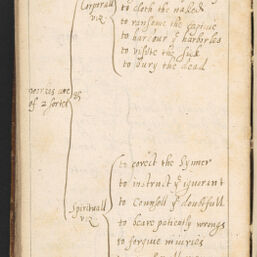 Corporall
viz
to cloth the naked
to ransome the captive
to harbour yᵉ harborles
to visite the sick
to bury the dead
of 2 sortes
Spirituall
viz
to corect the Synner
to instruct yᵉ ignorant
to Counsell yᵉ doubtfull
to beare patiently wrongs
to forgive iniuries